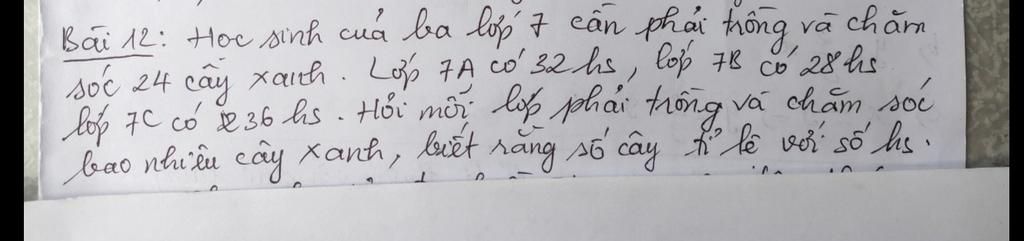 Bài 12: Học sinh của ba lớp 7 cần phải trồng và chăm
sóc 24 cây xanh. Lớp 7A có 32 hs, lớp 7B có 28 hs
lớp 7C có 36 hs. Hỏi mỗi lớp phải trồng và chăm sóc
bao nhiêu cây xanh, biết rằng số cây tỉ lệ với số hs.